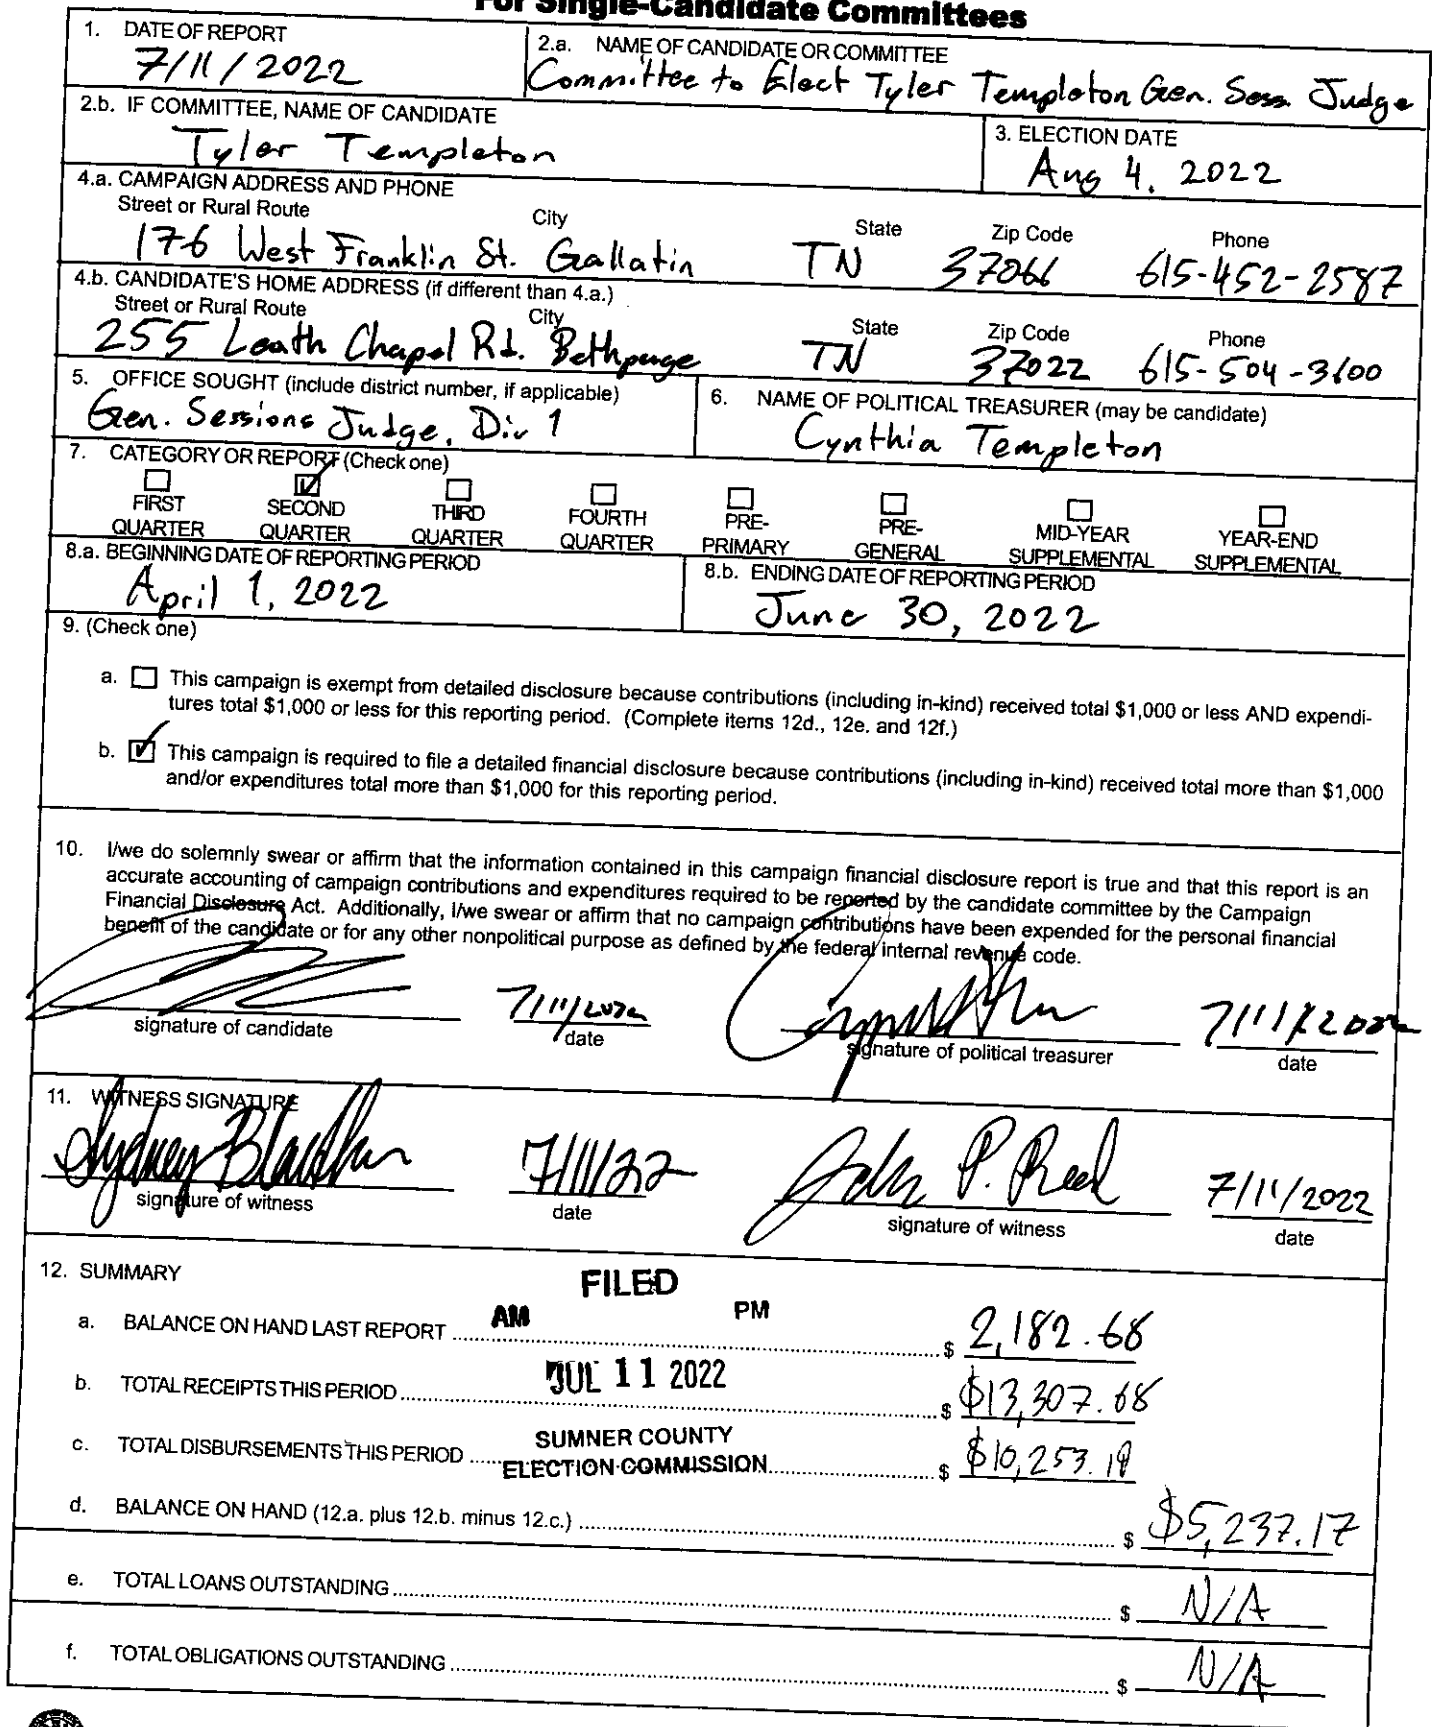 For Single-Candidate Committees
1. DATE OF REPORT
7/11/2022
2.a. NAME OF CANDIDATE OR COMMITTEE
Committee to Elect Tyler Templeton Gen. Sess. Judge
2.b. IF COMMITTEE, NAME OF CANDIDATE
Tyler Templeton
3. ELECTION DATE
Aug 4, 2022
4.a. CAMPAIGN ADDRESS AND PHONE
Street or Rural Route City State Zip Code Phone
176 West Franklin St. Gallatin TN 37066 615-452-2587
4.b. CANDIDATE'S HOME ADDRESS (if different than 4.a.)
Street or Rural Route City State Zip Code Phone
255 Leath Chapel Rd. Bethpage TN 37022 615-504-3600
5. OFFICE SOUGHT (include district number, if applicable)
Gen. Sessions Judge, Div 1
6. NAME OF POLITICAL TREASURER (may be candidate)
Cynthia Templeton
7. CATEGORY OR REPORT (Check one)
FIRST QUARTER
SECOND QUARTER
THIRD QUARTER
FOURTH QUARTER
PRE-PRIMARY
PRE-GENERAL
MID-YEAR SUPPLEMENTAL
YEAR-END SUPPLEMENTAL
8.a. BEGINNING DATE OF REPORTING PERIOD
April 1, 2022
8.b. ENDING DATE OF REPORTING PERIOD
June 30, 2022
9. (Check one)
a. This campaign is exempt from detailed disclosure because contributions (including in-kind) received total $1,000 or less AND expendi-
tures total $1,000 or less for this reporting period. (Complete items 12d., 12e. and 12f.)
b. This campaign is required to file a detailed financial disclosure because contributions (including in-kind) received total more than $1,000
and/or expenditures total more than $1,000 for this reporting period.
10. I/we do solemnly swear or affirm that the information contained in this campaign financial disclosure report is true and that this report is an
accurate accounting of campaign contributions and expenditures required to be reported by the candidate committee by the Campaign
Financial Disclosure Act. Additionally, I/we swear or affirm that no campaign contributions have been expended for the personal financial
benefit of the candidate or for any other nonpolitical purpose as defined by the federal internal revenue code.
7/11/2022 7/11/2022
signature of candidate date signature of political treasurer date
11. WITNESS SIGNATURE
Sydney 7/11/22 John P. Reed 7/11/2022
signature of witness date signature of witness date
12. SUMMARY
FILED
AM PM
a. BALANCE ON HAND LAST REPORT $ 2,182.68
JUL 11 2022
b. TOTAL RECEIPTS THIS PERIOD $ $13,307.68
SUMNER COUNTY
c. TOTAL DISBURSEMENTS THIS PERIOD $ $10,253.19
ELECTION COMMISSION
d. BALANCE ON HAND (12.a. plus 12.b. minus 12.c.) $ $5,237.17
e. TOTAL LOANS OUTSTANDING $ N/A
f. TOTAL OBLIGATIONS OUTSTANDING $ N/A